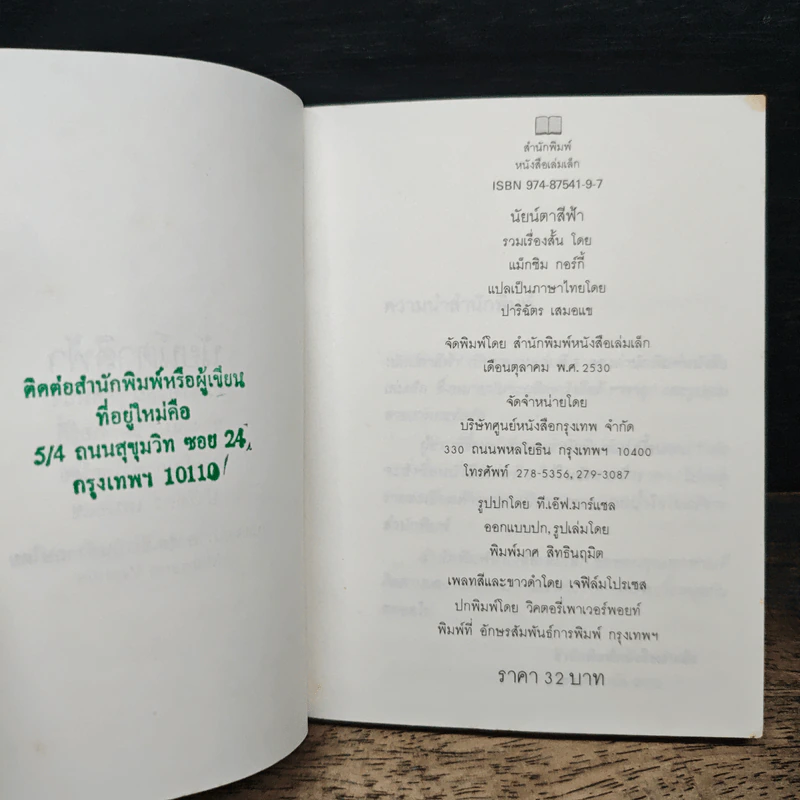 ติดต่อสำนักพิมพ์หรือผู้เขียน
ที่อยู่ใหม่คือ
5/4 ถนนสุขุมวิท ซอย 24
กรุงเทพฯ 10110
สำนักพิมพ์
หนังสือเล่มเล็ก
ISBN 974-87541-9-7
นัยน์ตาสีฟ้า
รวมเรื่องสั้น โดย
แม็กซิม กอร์กี้
แปลเป็นภาษาไทยโดย
ปาริฉัตร เสมอแข
จัดพิมพ์โดย สำนักพิมพ์หนังสือเล่มเล็ก
เดือนตุลาคม พ.ศ.2530
จัดจำหน่ายโดย
บริษัทศูนย์หนังสือกรุงเทพ จำกัด
330 ถนนพหลโยธิน กรุงเทพฯ 10400
โทรศัพท์ 278-5356,279-3087
รูปปกโดย ที.เอ๊ฟ.มาร์แชล
ออกแบบปก,รูปเล่มโดย
พิมพ์มาศ สิทธินฤมิต
เพลทสีและขาวดำโดย เจฟิล์มโปรเซส
ปกพิมพ์โดย วิคตอรี่เพาเวอร์พอยท์
พิมพ์ที่ อักษรสัมพันธ์การพิมพ์ กรุงเทพฯ
ราคา 32 บาท